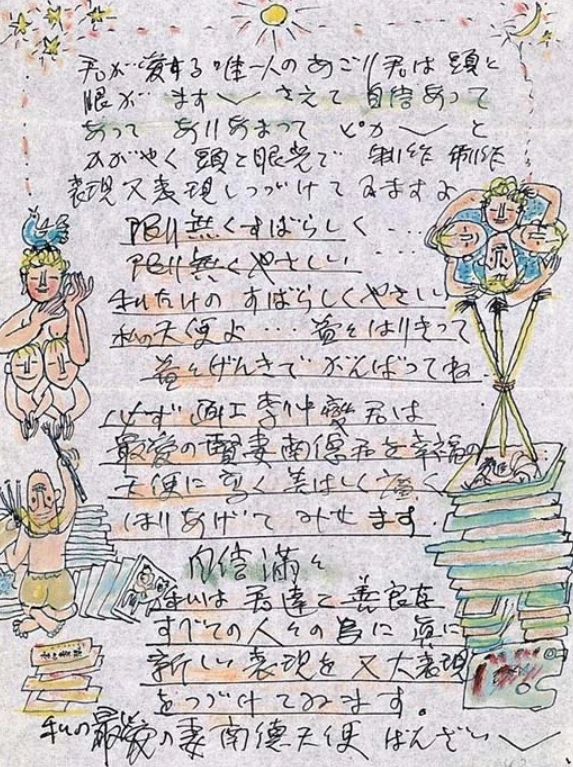 君が愛する唯一人のあごり君は頭と
眼が ます〱 さえて 自信あって
あって ありあまって ピカ〱 と
かがやく 頭と眼光で 制作 制作
表現又表現しつづけてゐますよ
限り無くすばらしく・・・
限り無くやさしい
私だけの すばらしくやさしい
私の天使よ・・・益々はりきって
益々げんきで がんばってね
必ず 画工李仲燮君は
最愛の賢妻南徳君を幸福の
天使に高く美はしく
ほりあげて みせ ます.
自信満々
私は 君達と 善良な
すべての人々の為に 眞に
新しい 表現を 又 大表現
をつづけてゐます。
私の最愛の妻南徳天使 ばんざい〱